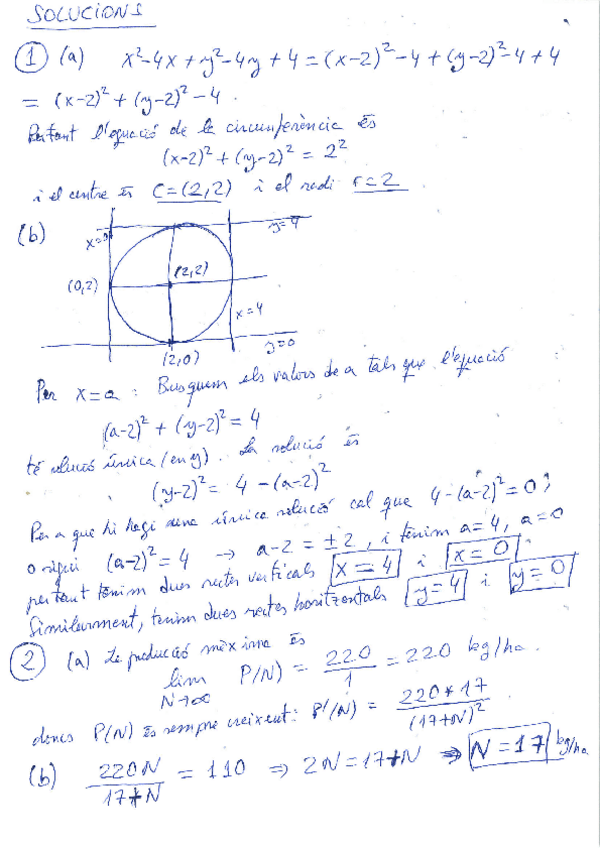 SOLUCIONS
1 (a) x²-4x+y²-4y+4=(x-2)²-4+(y-2)²-4+4
= (x-2)²+(y-2)²-4.
Pertant l'equació de la circumferència és
(x-2)²+(y-2)² = 2²
i el centre és C=(2,2) i el radi r=2
(b)
x=0
y=4
(2,2)
(0,2)
x=4
y=0
(2,0)
Per x=a : Busquem els valors de a tals que l'equació
(a-2)²+(y-2)²=4
té solució única (en y). La solució és
(y-2)² = 4-(a-2)²
Per a que hi hagi una única solució cal que 4-(a-2)²=0;
o sigui (a-2)²=4 → a-2=±2, i tenim a=4, a=0
pertant tenim dues rectes verticals x=4 i x=0.
Similarment, tenim dues rectes horitzontals y=4 i y=0
2 (a) La producció màxima és
lim N→∞ P(N) = 220/1 = 220 kg/ha.
doncs P(N) és sempre creixent: P'(N) = 220*17/(17+N)²
(b) 220N/17+N = 110 ⇒ 2N=17+N ⇒ N=17 kg/ha